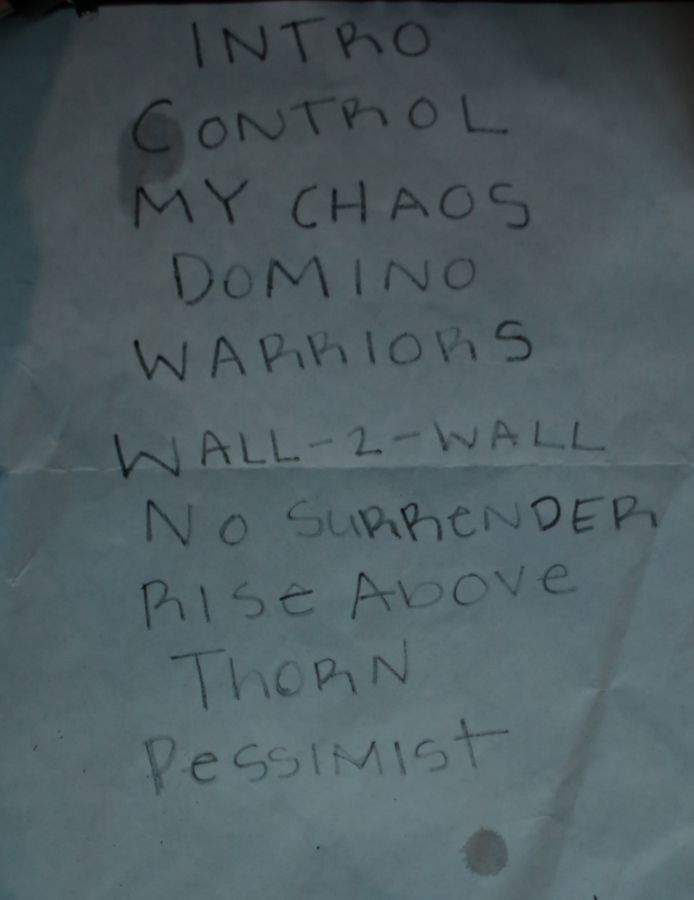 INTRO
CONTROL
MY CHAOS
DOMINO
WARRIORS
WALL-2-WALL
NO SURRENDER
RISE ABOVE
THORN
PESSIMIST